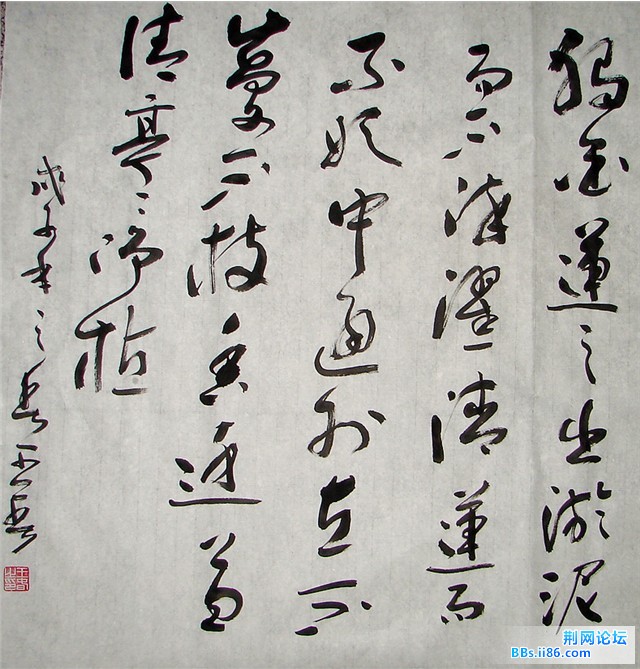 獨愛蓮之出淤泥
而不染濯清蓮而
不妖中通外直不
蔓不枝香遠益
清亭々淨植
戊子年之春王春
荆网论坛
BBs.ii86.com